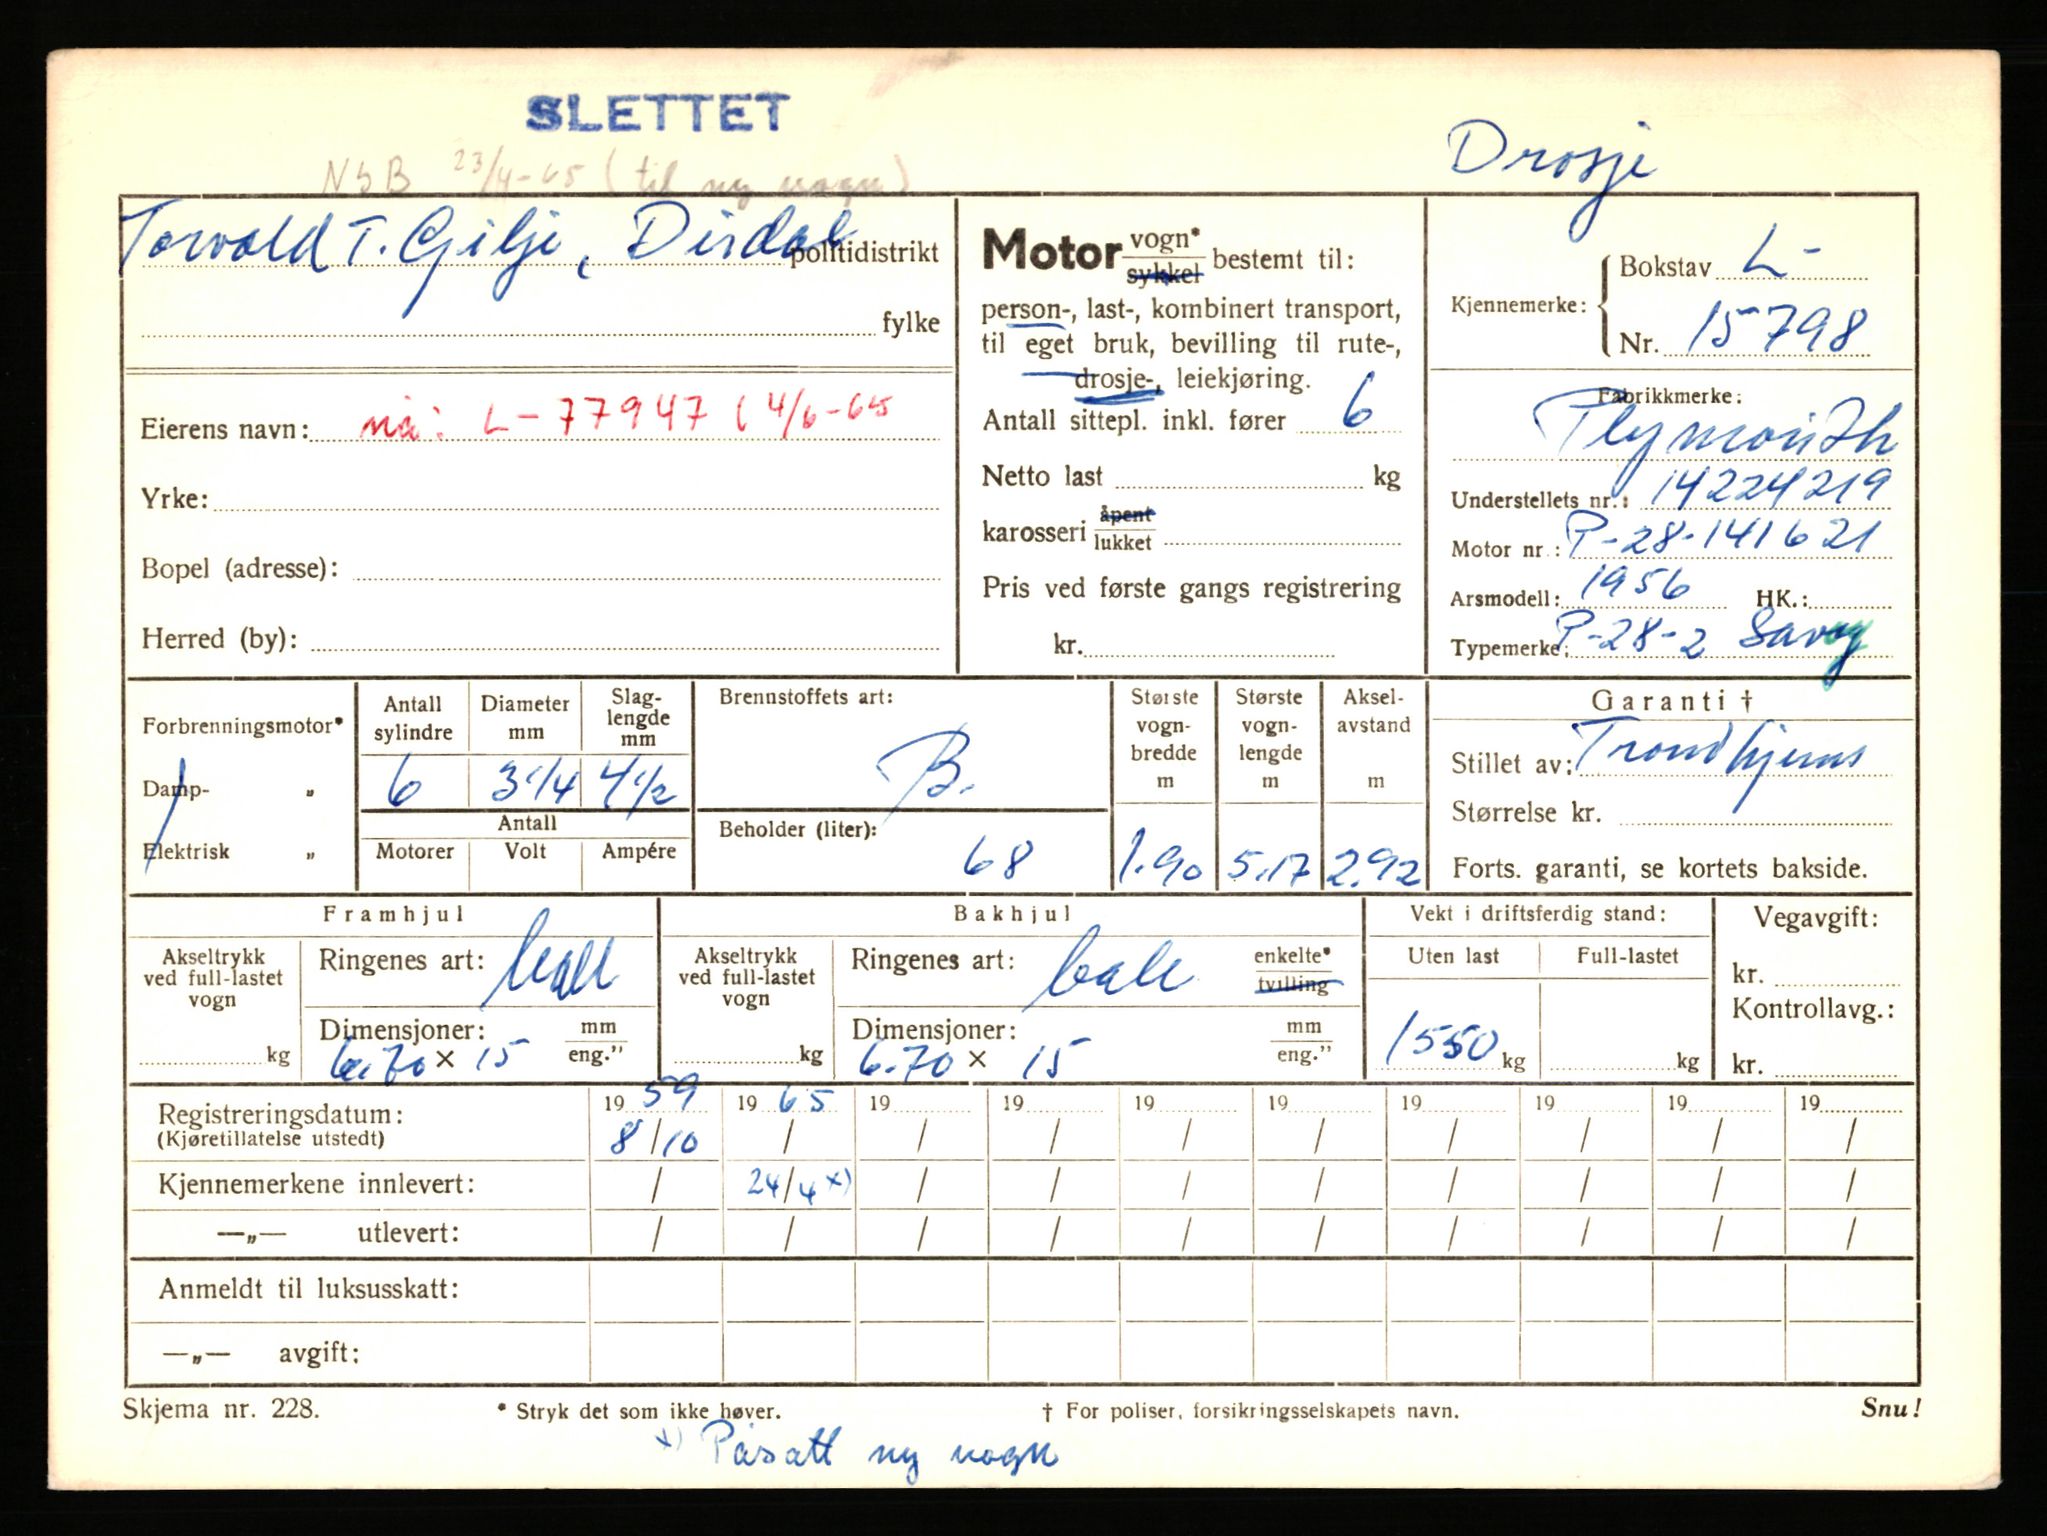 SLETTET
Drosje
NSB 23/4-65 (til ny vogn)
Torvald T. Gilje, Dirdal politidistrikt
fylke
Eierens navn: nå: L-77947 (4/6-65
Yrke:
Bopel (adresse):
Herred (by):
Motor vogn* sykkel bestemt til:
person-, last-, kombinert transport,
til eget bruk, bevilling til rute-,
drosje-, leiekjøring.
Antall sittepl. inkl. fører 6
Netto last kg
karosseri åpent lukket
Pris ved første gangs registrering
kr.
Kjennemerke: { Bokstav L-
Nr. 15798
Fabrikkmerke:
Plymouth
Understellets nr.: 14224219
Motor nr.: P-28-141621
Arsmodell: 1956 HK.:
Typemerke: P-28-2 Savoy
Forbrenningsmotor*
Damp- „
Elektrisk „
Antall sylindre 6
Diameter mm 3 1/4
Slag-lengde mm 4 1/2
Antall
Motorer Volt Ampére
Brennstoffets art: B.
Beholder (liter): 68
Største vogn-bredde m 1.90
Største vogn-lengde m 5.17
Aksel-avstand m 2.92
Garanti †
Stillet av: Trondhjems
Størrelse kr.
Forts. garanti, se kortets bakside.
Framhjul
Akseltrykk ved full-lastet vogn kg
Ringenes art: ball
Dimensjoner: mm eng."
6.70 × 15
Bakhjul
Akseltrykk ved full-lastet vogn kg
Ringenes art: ball enkelte* tvilling
Dimensjoner: mm eng."
6.70 × 15
Vekt i driftsferdig stand:
Uten last Full-lastet
1550 kg kg
Vegavgift:
kr.
Kontrollavg.:
kr.
Registreringsdatum: 19 59 19 65 19 19 19 19 19 19 19 19
(Kjøretillatelse utstedt) 8/10 / / / / / / / / /
Kjennemerkene innlevert: / 24/4 x) / / / / / / / /
—„— utlevert: / / / / / / / / / /
Anmeldt til luksusskatt:
—„— avgift:
Skjema nr. 228. * Stryk det som ikke høver. † For poliser, forsikringsselskapets navn. Snu!
x) Påsatt ny vogn